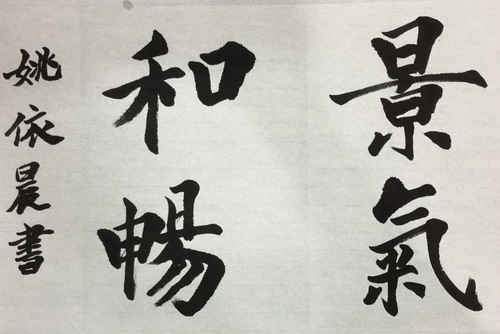 景氣
和暢
姚依晨書